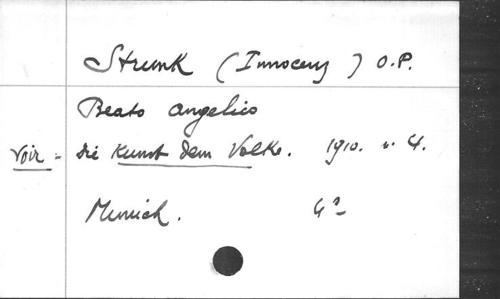 Strunk (Innocenz) O.P.
Beato Angelico
Voir = die Kunst dem Volke. 1910. n. 4.
Munich. 4°